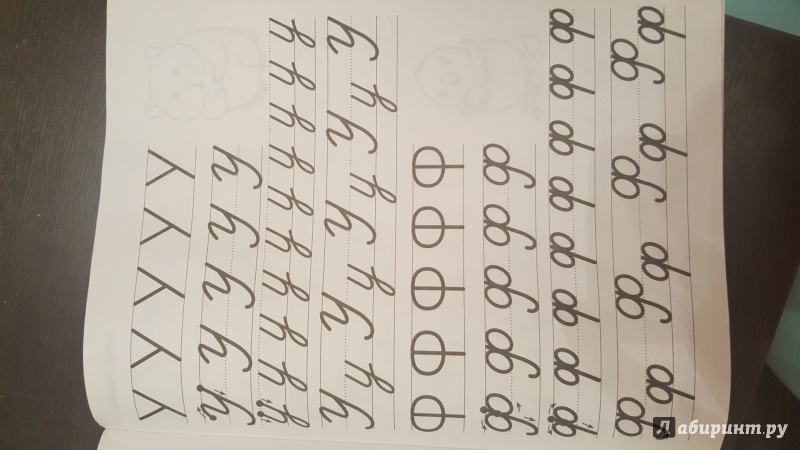 У У У У У
У У У У У
у у у у у у у у у у
У у У у У у У у У
Ф Ф Ф Ф Ф
Ф Ф Ф Ф Ф
ф ф ф ф ф ф ф ф
Ф ф Ф ф Ф ф Ф ф
Лабиринт.ру